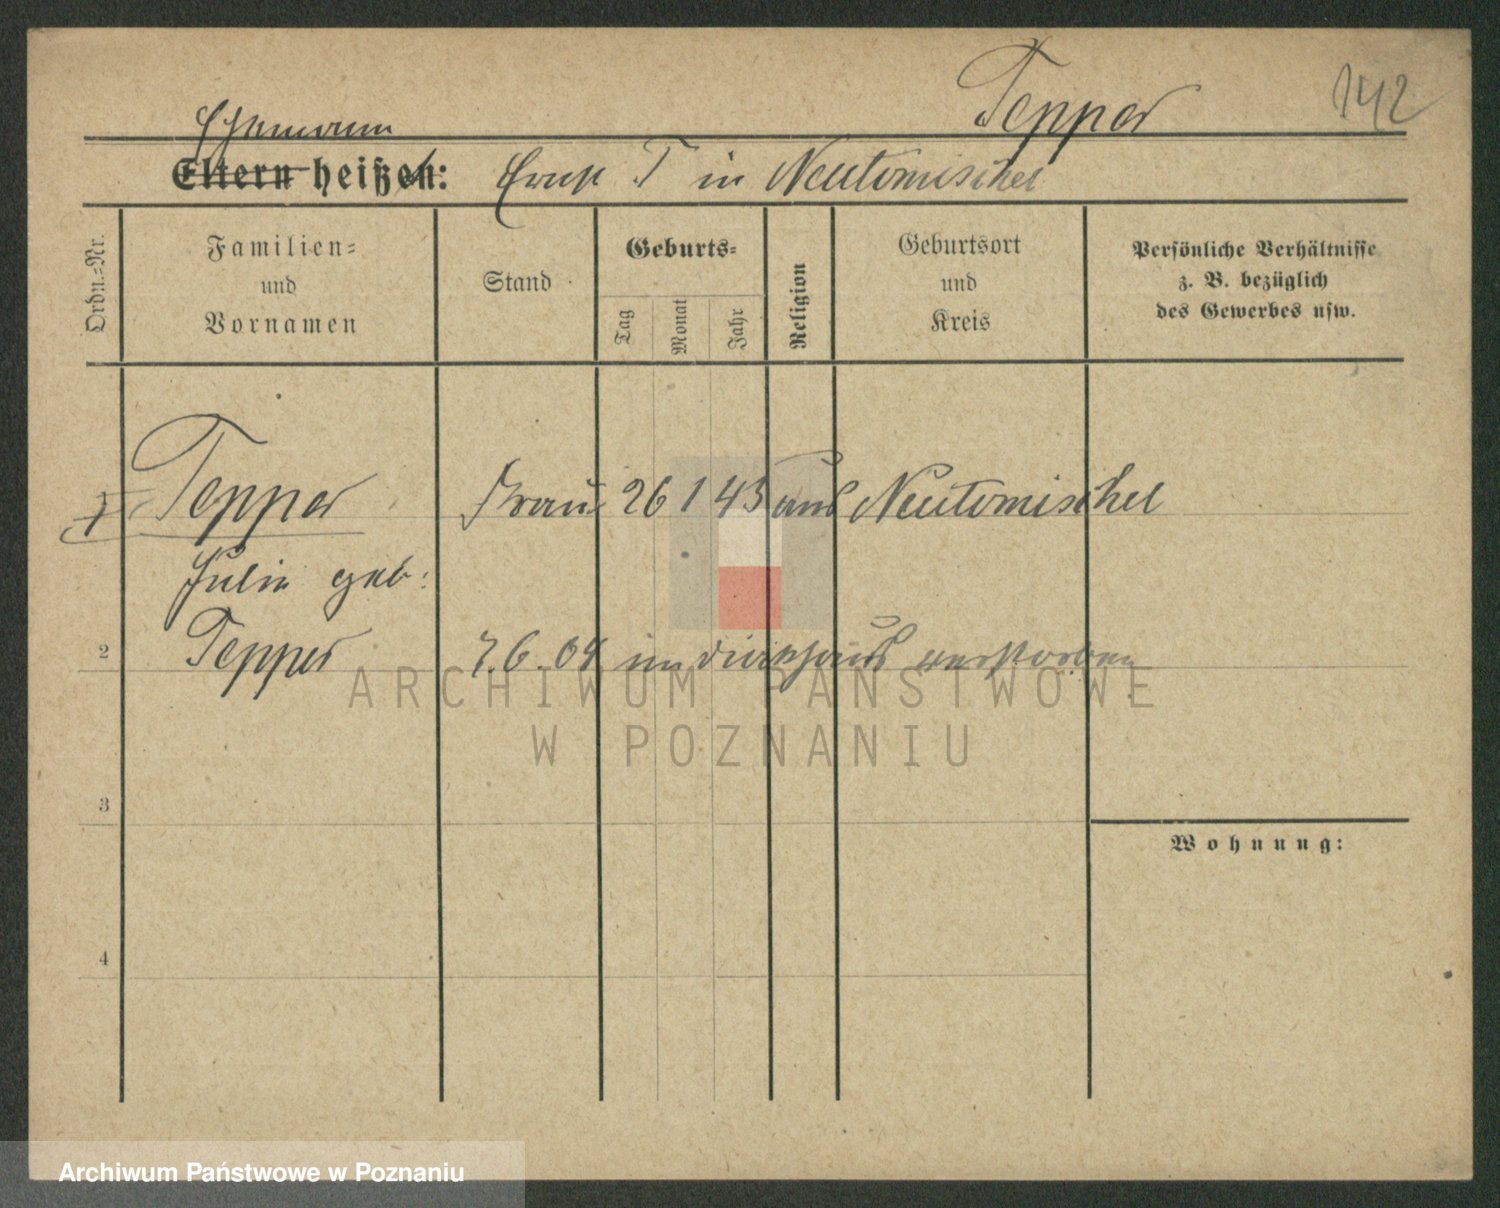 Tepper 142
Ehemann
Eltern heißen: Ernst T in Neutomischel
Ordn.=Nr.
Familien=
und
Vornamen
Stand
Geburts=
Tag
Monat
Jahr
Religion
Geburtsort
und
Kreis
Persönliche Verhältnisse
z. B. bezüglich
des Gewerbes usw.
Tepper Frau 26 1 43 aus Neutomischel
Julie geb:
2 Tepper 7.6.04 im verstorben
ARCHIWUM PAŃSTWOWE
W POZNANIU
3
Wohnung:
4
Archiwum Państwowe w Poznaniu